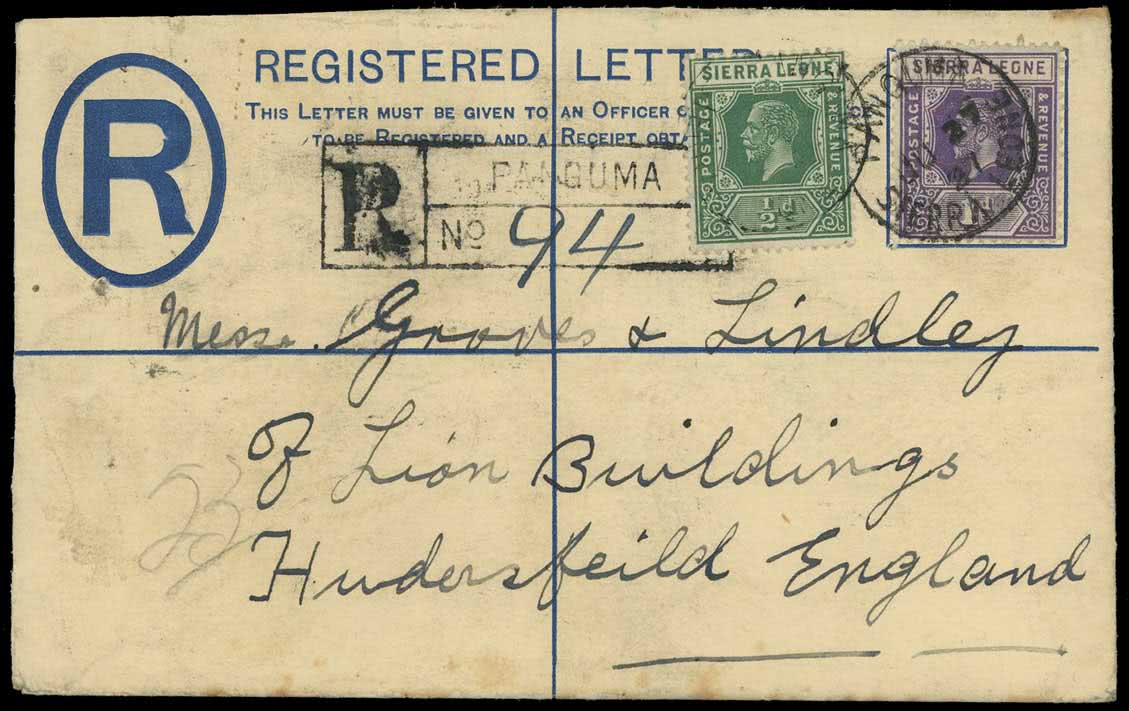 REGISTERED LETT
THIS LETTER MUST BE GIVEN TO AN OFFICER O
TO BE REGISTERED AND A RECEIPT OBT
R
R
PANGUMA
No 94
SIERRA LEONE
POSTAGE
& REVENUE
½d
SIERRA LEONE
POSTAGE
& REVENUE
SIERRA
Messrs. Groves & Lindley
Of Lion Buildings
Hudersfeild England